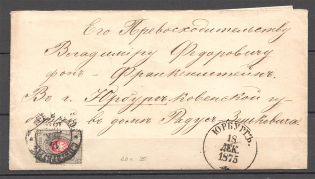 Его Превосходительству
Владиміру Федоровичу
фонъ-Франкенштейнъ.
Въ г. Юрбургъ Ковенской гу
въ домѣ
ЮРБУРГЪ.
18
ДЕК.
1875